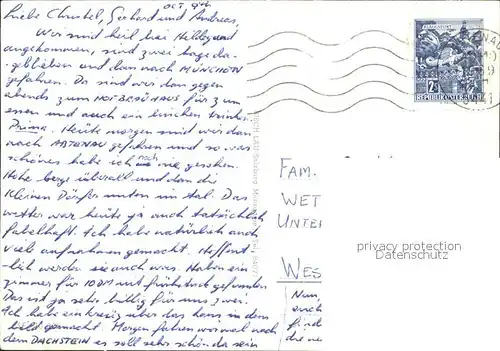 OCT 94.
Liebe Christel, Gerhard und Andreas,
Wir sind heil bei Hildegard
angekommen, sind zwei tage da-
geblieben und dann nach MÜNCHEN
gefahren. Da sind wir dan gegen
abends zum HOFBRÄUHAUS für zum
essen und auch ein bischen trinken.
Prima. Heute morgen sind wir dan
nach ABTENAU gefahren und so was
schönes habe ich noch nie gesehen.
Hohe berge überall und dan die
kleinen Dörfer unten im tal. Das
wetter war heute ja auch tatsächlich
fabelhaft. Ich habe natürlich auch
viel aufnahmen gemacht. Hoffent-
lich werden sie auch was. Haben ein
zimmer für 10 DM mit frühstück gefunden
Das ist ja sehr billig für uns zwei.
Ich habe ein kreuz über das haus in dem
bild gemacht. Morgen fahren wir mal nach
dem DACHSTEIN es soll sehr schön da sein
REPUBLIK ÖSTERREICH
FAM.
WET
UNTER
WES
privacy protection
ansichtskarten-center.de
Nun,
auch
find
die ne